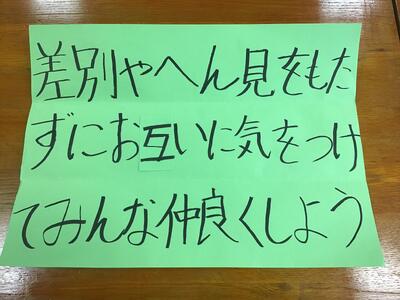 差別やへん見をもた
ずにお互いに気をつけ
てみんな仲良くしよう